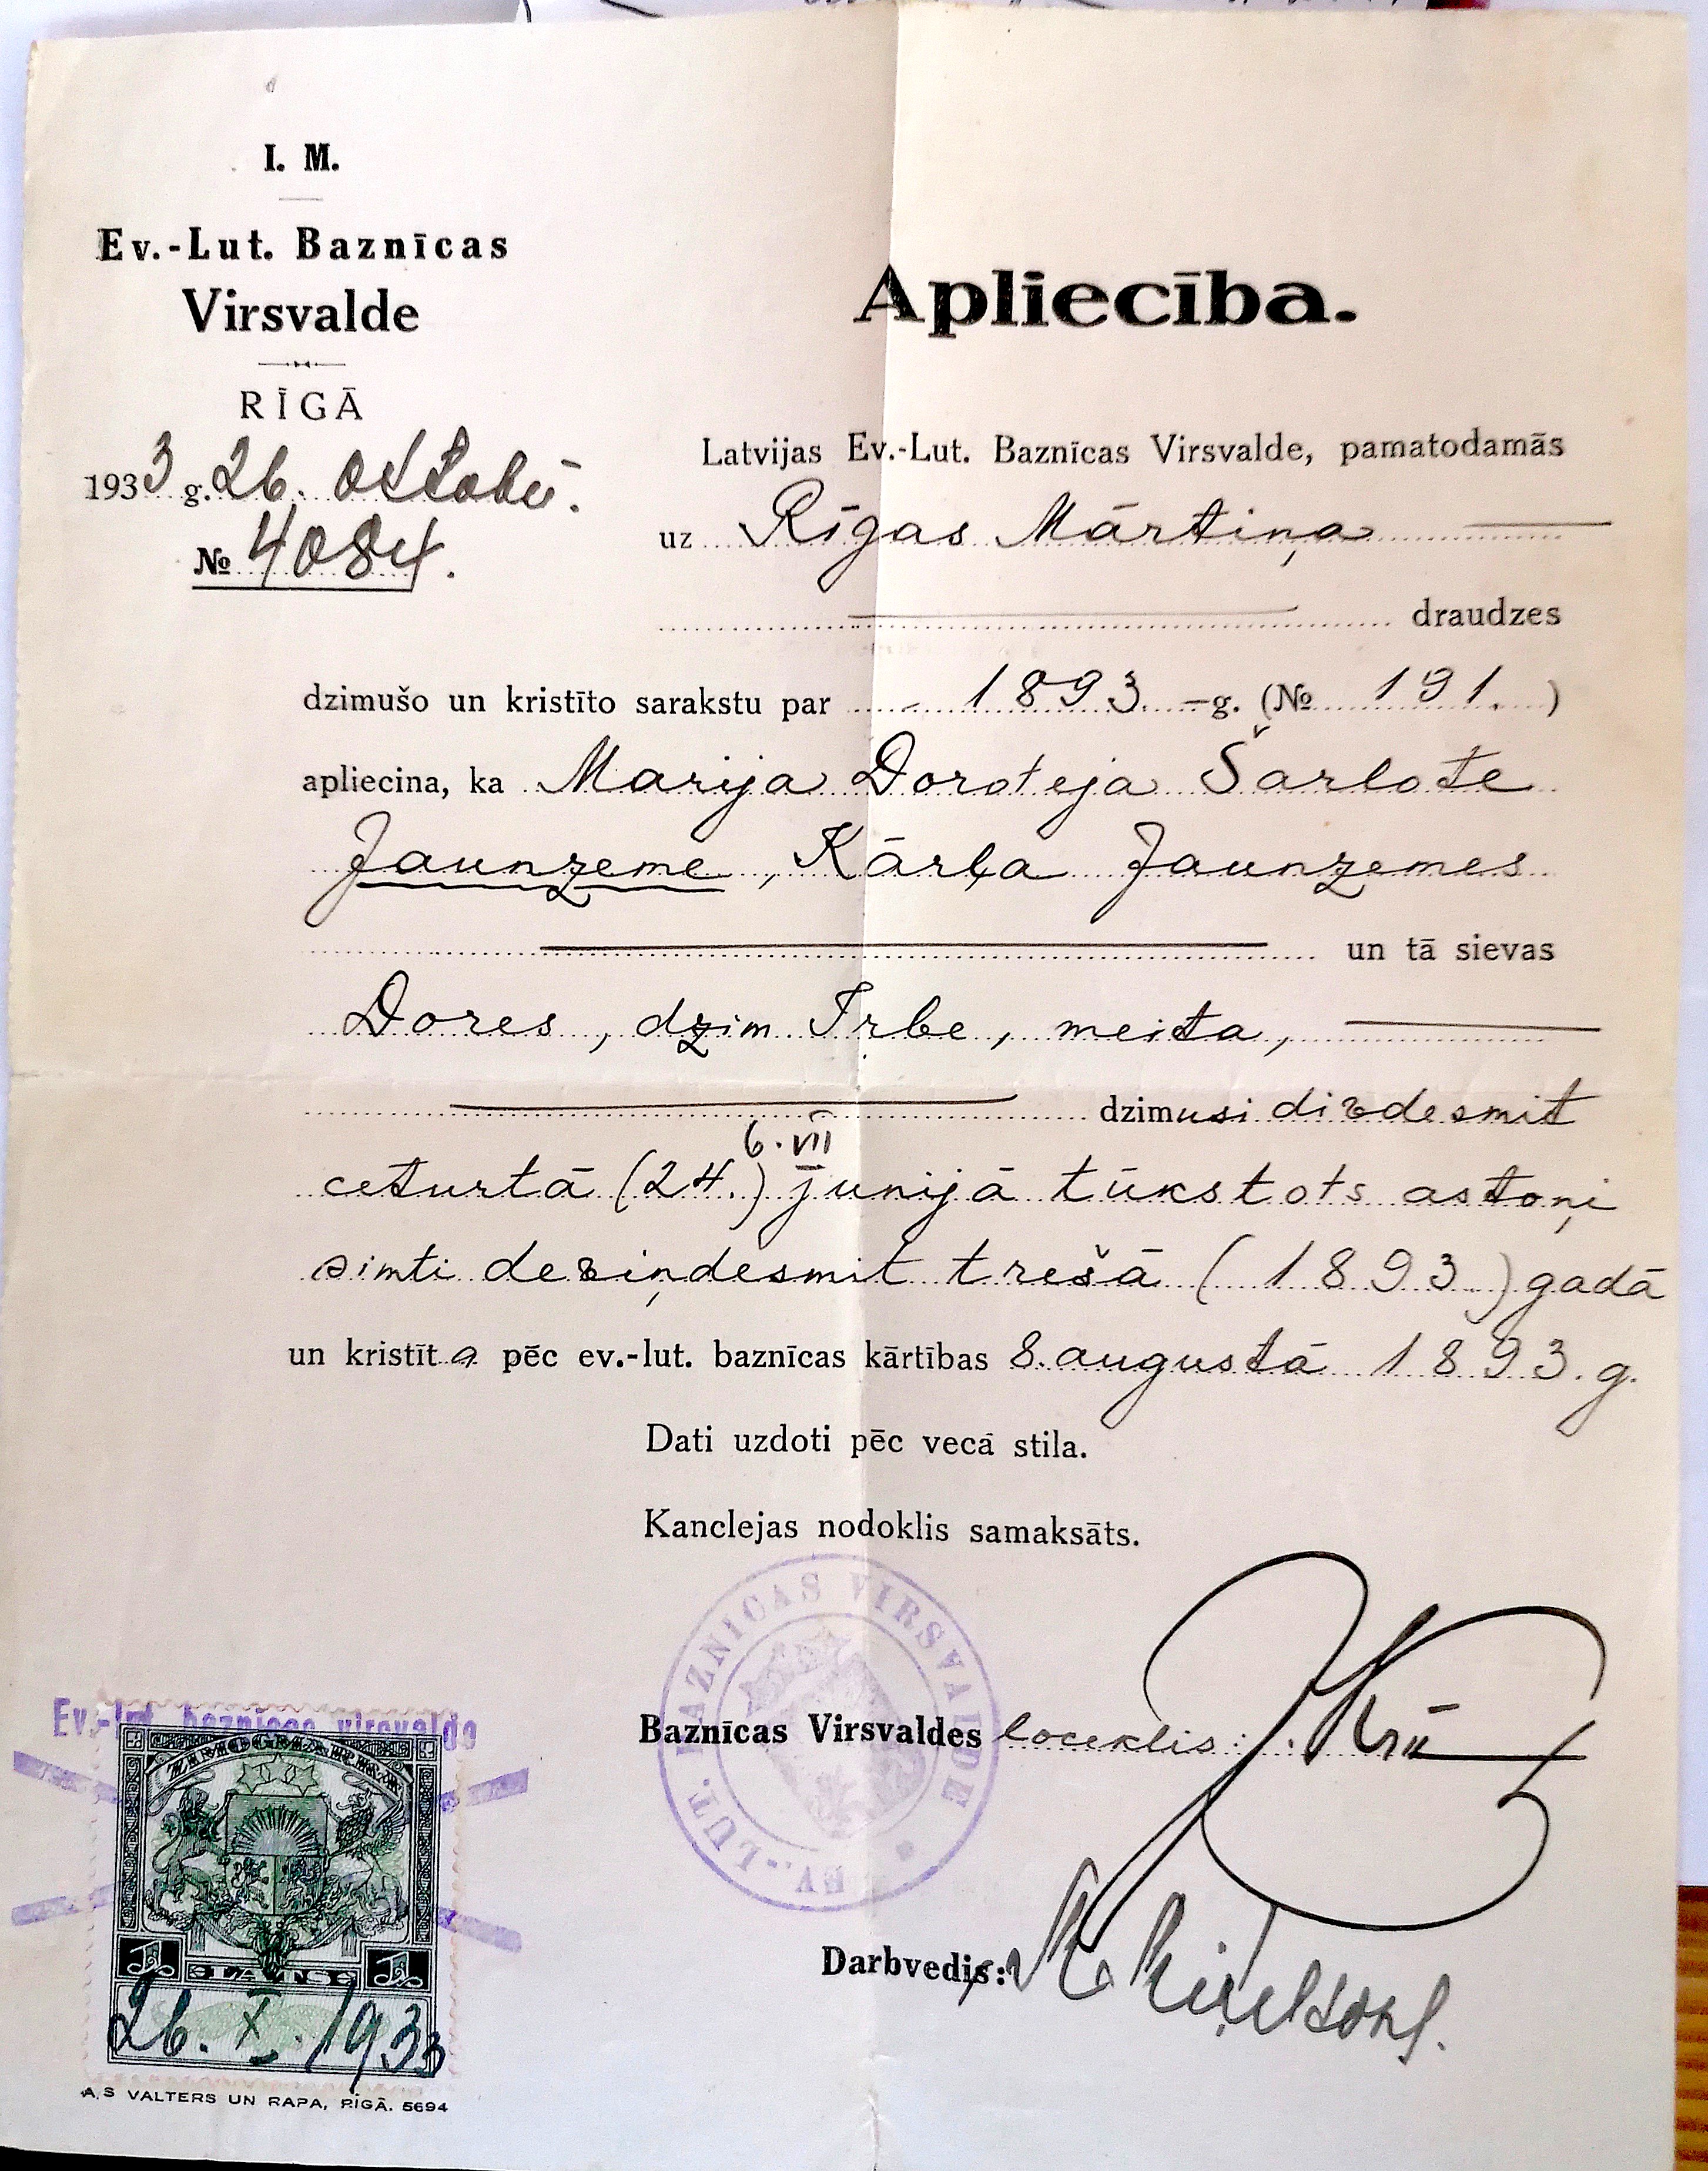 I. M.
Ev.-Lut. Baznīcas
Virsvalde
RĪGĀ
1933 g. 26. oktobrī.
№ 4084.
Apliecība.
Latvijas Ev.-Lut. Baznīcas Virsvalde, pamatodamās
uz Rīgas Mārtiņa
draudzes
dzimušo un kristīto sarakstu par 1893 g. (№ 191.)
apliecina, ka Marija Doroteja Šarlote
Jaunzeme, Kārļa Jaunzemes
un tā sievas
Dores, dzim Irbe, meita,
dzimusi divdesmit
6. VII
ceturtā (24.) jūnijā tūkstots astoņi
simti deviņdesmit trešā (1893) gadā
un kristīta pēc ev.-lut. baznīcas kārtības 8. augustā 1893. g.
Dati uzdoti pēc vecā stila.
Kanclejas nodoklis samaksāts.
EV.-LUT. BAZNICAS VIRSVALDE
Baznīcas Virsvaldes loceklis:
Darbvedis:
Ev.-lut. baznicas virsvalde
ZIMOGMARKA
1 LATS 1
26. X. 1933
A.S VALTERS UN RAPA, RĪGĀ. 5694